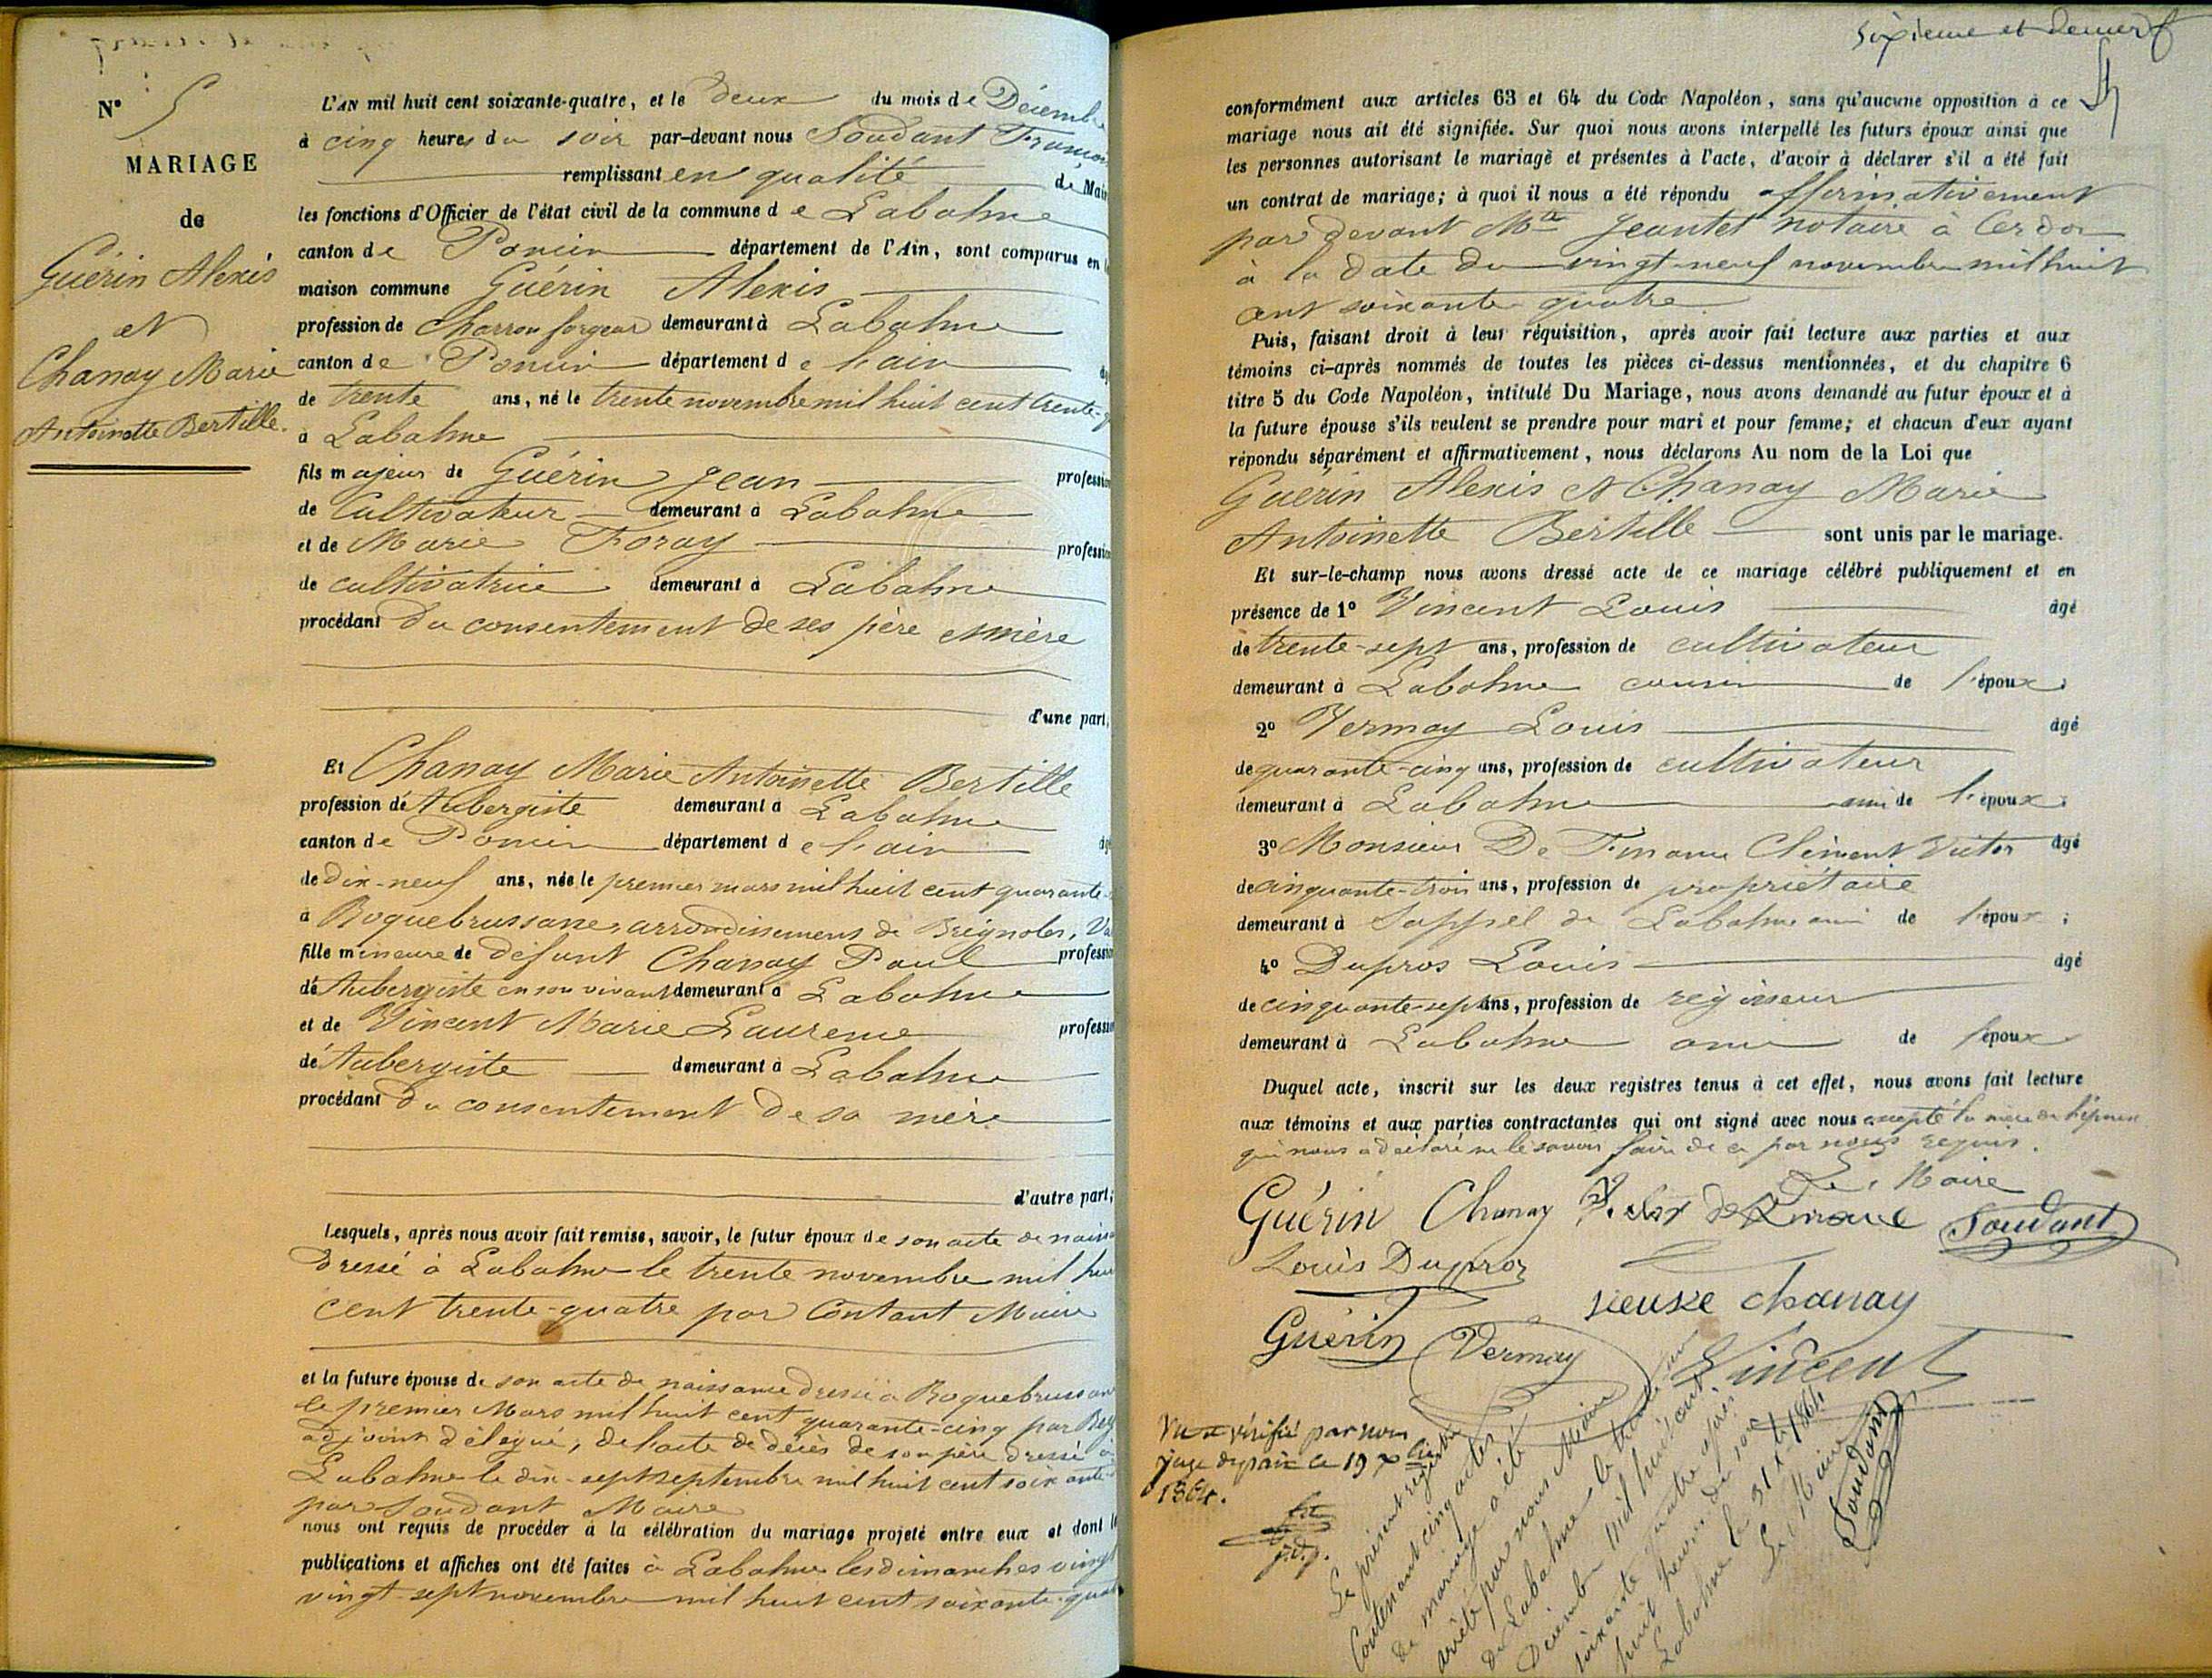 N° 5
MARIAGE
de
Guérin Alexis
et
Chanay Marie
Antoinette Bertille.
L'AN mil huit cent soixante-quatre, et le deux du mois de Décembre
à cinq heures du soir par-devant nous Soudant
remplissant en qualité de Mai
les fonctions d'Officier de l'état civil de la commune de Labalme
canton de Poncin département de l'Ain, sont comparus en l
maison commune Guérin Alexis
profession de Charron forgeur demeurant à Labalme
canton de Poncin département de l'ain âg
de trente ans, né le trente novembre mil huit cent trente-q
à Labalme
fils majeur de Guérin Jean profession
de Cultivateur demeurant à Labalme
et de Marie Foray profession
de cultivatrice demeurant à Labalme
procédant du consentement de ses père et mère
d'une part;
Et Chanay Marie Antoinette Bertille
profession d'Aubergiste demeurant à Labalme
canton de Poncin département de l'ain âg
de dix-neuf ans, née le premier mars mil huit cent quarante
à Roquebrussane, arrondissement de Brignoles, Va
fille mineure de défunt Chanay Paul profession
d'Aubergiste en son vivant demeurant à Labalme
et de Vincent Marie Laurence profession
d'Aubergiste demeurant à Labalme
procédant du consentement de sa mère
d'autre part;
Lesquels, après nous avoir fait remise, savoir, le futur époux de son acte de naiss
dressé à Labalme le trente novembre mil hui
cent trente-quatre par Contant Maire
et la future épouse de son acte de naissance dressé à Roquebrussan
le premier Mars mil huit cent quarante-cinq par
adjoint délégué, de l'acte de décès de son père dressé à
Labalme le dix-sept septembre mil huit cent soixante
par Soudant Maire
nous ont requis de procéder à la célébration du mariage projeté entre eux et dont l
publications et affiches ont été faites à Labalme les dimanches vingt
vingt-sept novembre mil huit cent soixante-quat
Sixième et dernier f
conformément aux articles 63 et 64 du Code Napoléon, sans qu'aucune opposition à ce
mariage nous ait été signifiée. Sur quoi nous avons interpellé les futurs époux ainsi que
les personnes autorisant le mariage et présentes à l'acte, d'avoir à déclarer s'il a été fait
un contrat de mariage; à quoi il nous a été répondu affirmativement
par devant Me Jeantet notaire à Cerdon
à la date du vingt-neuf novembre mil huit
cent soixante-quatre
Puis, faisant droit à leur réquisition, après avoir fait lecture aux parties et aux
témoins ci-après nommés de toutes les pièces ci-dessus mentionnées, et du chapitre 6
titre 5 du Code Napoléon, intitulé Du Mariage, nous avons demandé au futur époux et à
la future épouse s'ils veulent se prendre pour mari et pour femme; et chacun d'eux ayant
répondu séparément et affirmativement, nous déclarons Au nom de la Loi que
Guérin Alexis et Chanay Marie
Antoinette Bertille sont unis par le mariage.
Et sur-le-champ nous avons dressé acte de ce mariage célébré publiquement et en
présence de 1° Vincent Louis âgé
de trente-sept ans, profession de cultivateur
demeurant à Labalme cousin de l'époux;
2° Vermay Louis âgé
de quarante-cinq ans, profession de cultivateur
demeurant à Labalme ami de l'époux;
3° Monsieur De Finance Clément Victor âgé
de cinquante-trois ans, profession de propriétaire
demeurant à Sappel de Labalme ami de l'époux;
4° Dupros Louis âgé
de cinquante-sept ans, profession de régisseur
demeurant à Labalme ami de l'époux
Duquel acte, inscrit sur les deux registres tenus à cet effet, nous avons fait lecture
aux témoins et aux parties contractantes qui ont signé avec nous excepté la mère de l'époux
qui nous a déclaré ne le savoir faire de ce par nous requis.
Le Maire
Guérin Chanay Soudant
Louis Duproz
veuve chanay
Guérin Vermay Vincent
Vu et vérifié par nous
juge de paix le 19 xbre
1864.
j.d.p.
Le présent registre
Contenant cinq actes
de mariage a été
arrêté par nous Maire
de Labalme le trente un
Décembre mil huit cent
soixante quatre après
huit heures du soir
Labalme le 31 xbre 1864
Le Maire
Soudant